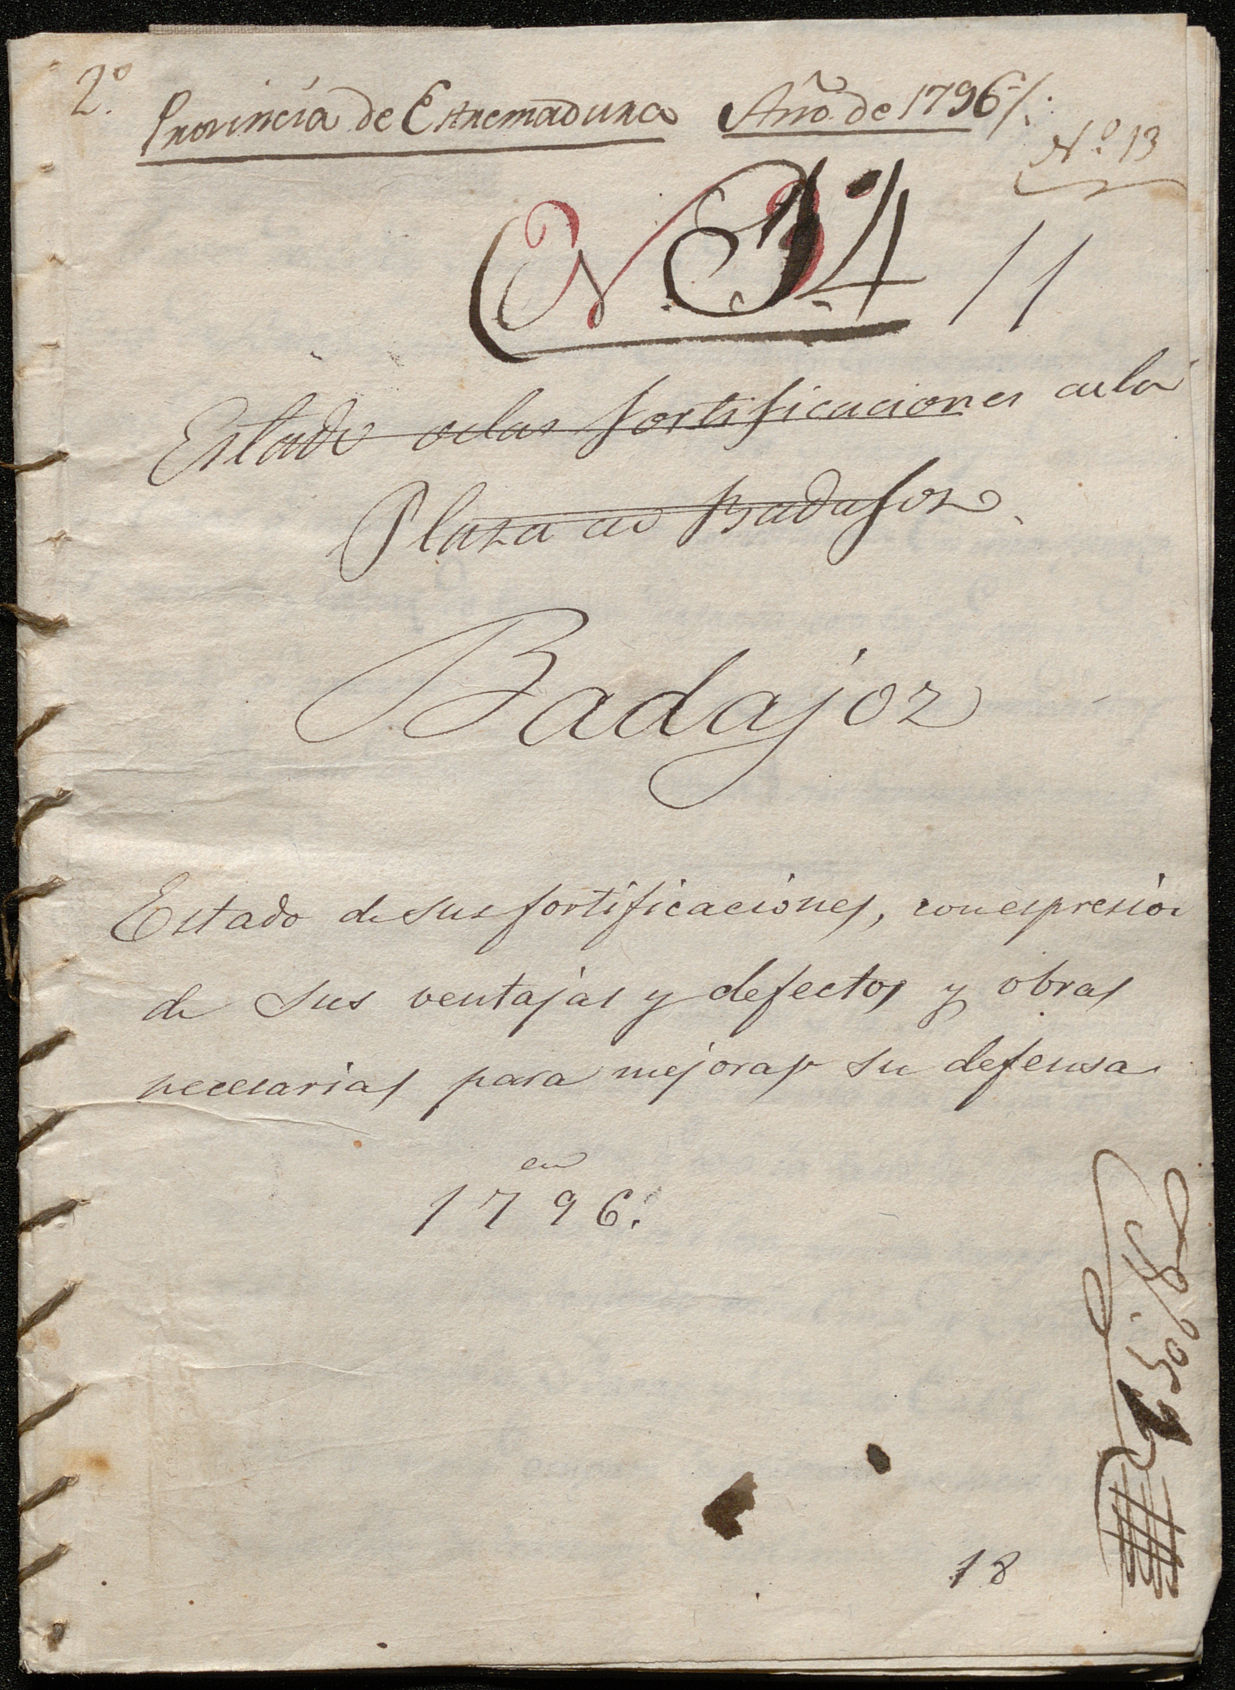 2º.
Provincia de Estremadura Año de 1796/.
Nº. 13
N. 14
11
Estado de las fortificaciones de la
Plaza de Badajoz.
Badajoz
Estado de sus fortificaciones, con espresion
de sus ventajas y defectos y obras
necesarias para mejorar su defensa
en
1796.
18